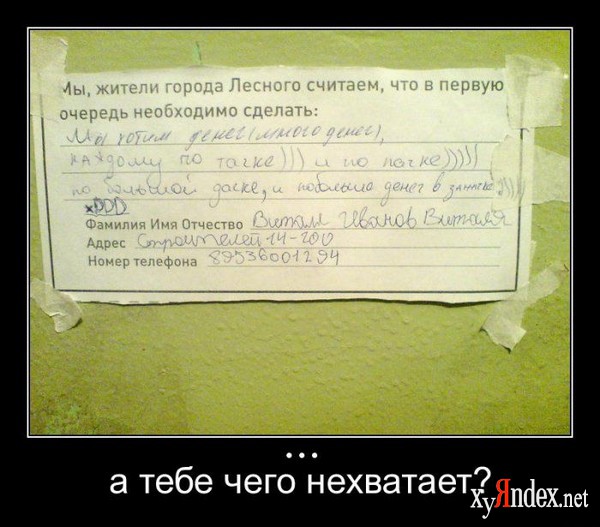 Мы, жители города Лесного считаем, что в первую
очередь необходимо сделать:
Мы хотим денег(много денег),
каждому по тачке))) и по пачке)))))
по большой доске, и побольше денег в заначке)))))
xDDD
Фамилия Имя Отчество Виталя Иванов Виталя
Адрес Строителей 14-200
Номер телефона 89536001294
...
а тебе чего нехватает?
ХуЯndex.net